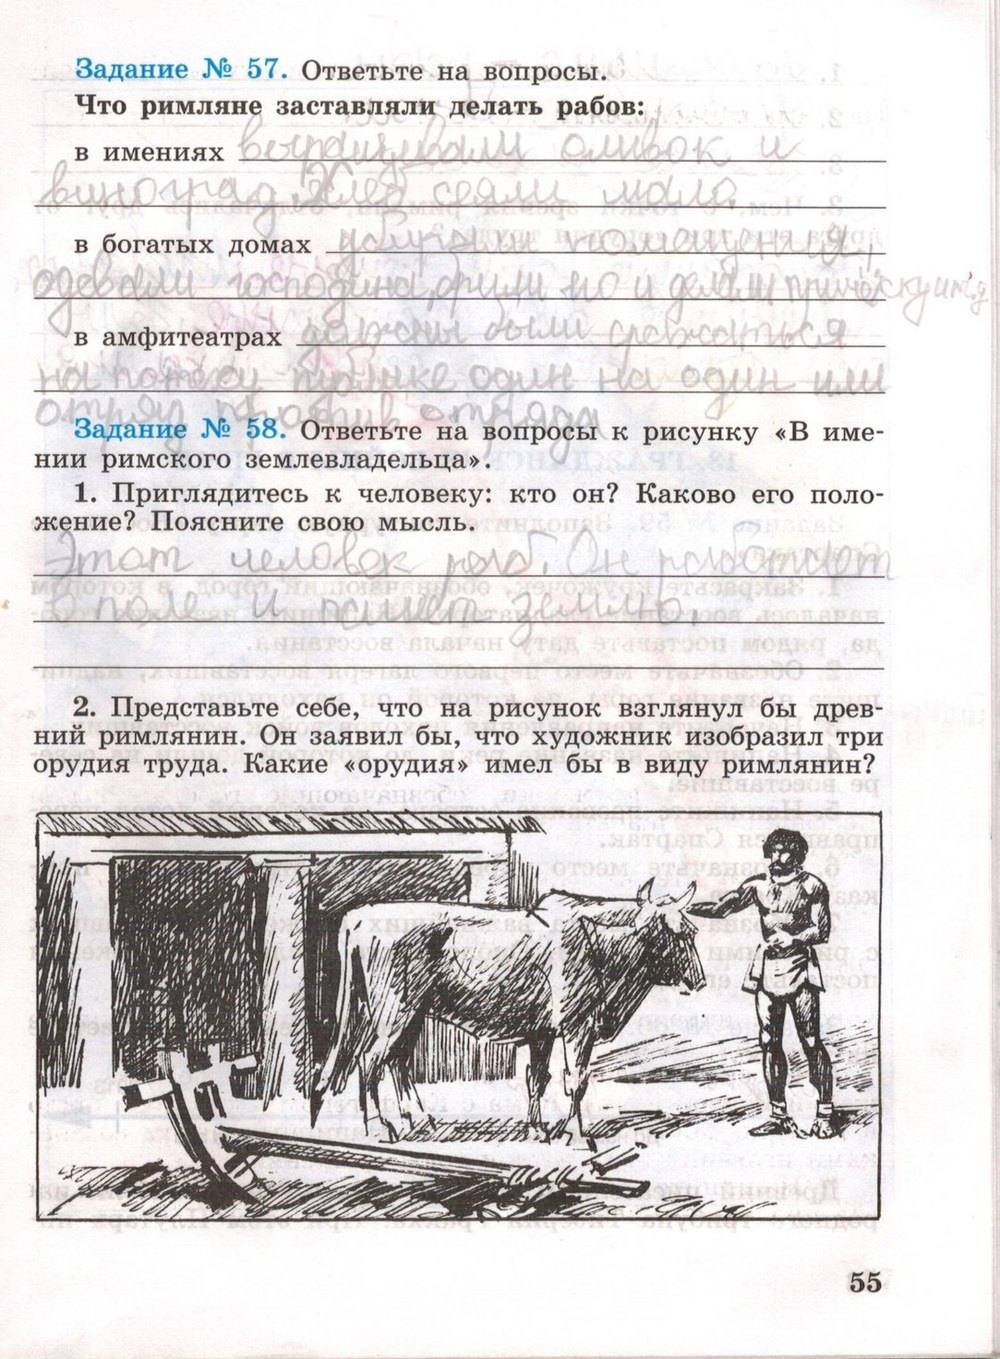 Задание № 57. Ответьте на вопросы.
Что римляне заставляли делать рабов:
в имениях выращивали оливок и
виноград. Хлеб сеяли мало.
в богатых домах
одевали господина, брили его и делали причёску и т.д
в амфитеатрах должны были сражаться
на потеху публике один на один или
отряд против отряда
Задание № 58. Ответьте на вопросы к рисунку «В име-
нии римского землевладельца».
1. Приглядитесь к человеку: кто он? Каково его поло-
жение? Поясните свою мысль.
Этот человек раб. Он работает
в поле и пашет землю.
2. Представьте себе, что на рисунок взглянул бы древ-
ний римлянин. Он заявил бы, что художник изобразил три
орудия труда. Какие «орудия» имел бы в виду римлянин?
55